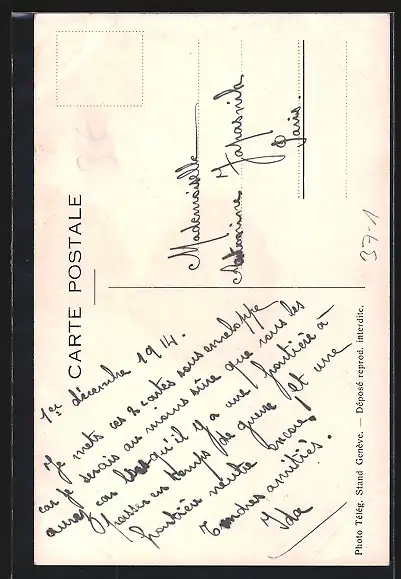 CARTE POSTALE
1er décembre 1914.
Je mets ces 2 cartes sous enveloppe
car je serais au moins sûre que vous les
aurez car lorsqu'il y a une frontière à
passer en temps de guerre et une
frontière neutre encore!
Tendres amitiés.
Ida
Mademoiselle
Antonine
Paris.
37-1
Photo Télég. Stand Genève. — Déposé reprod. interdite.